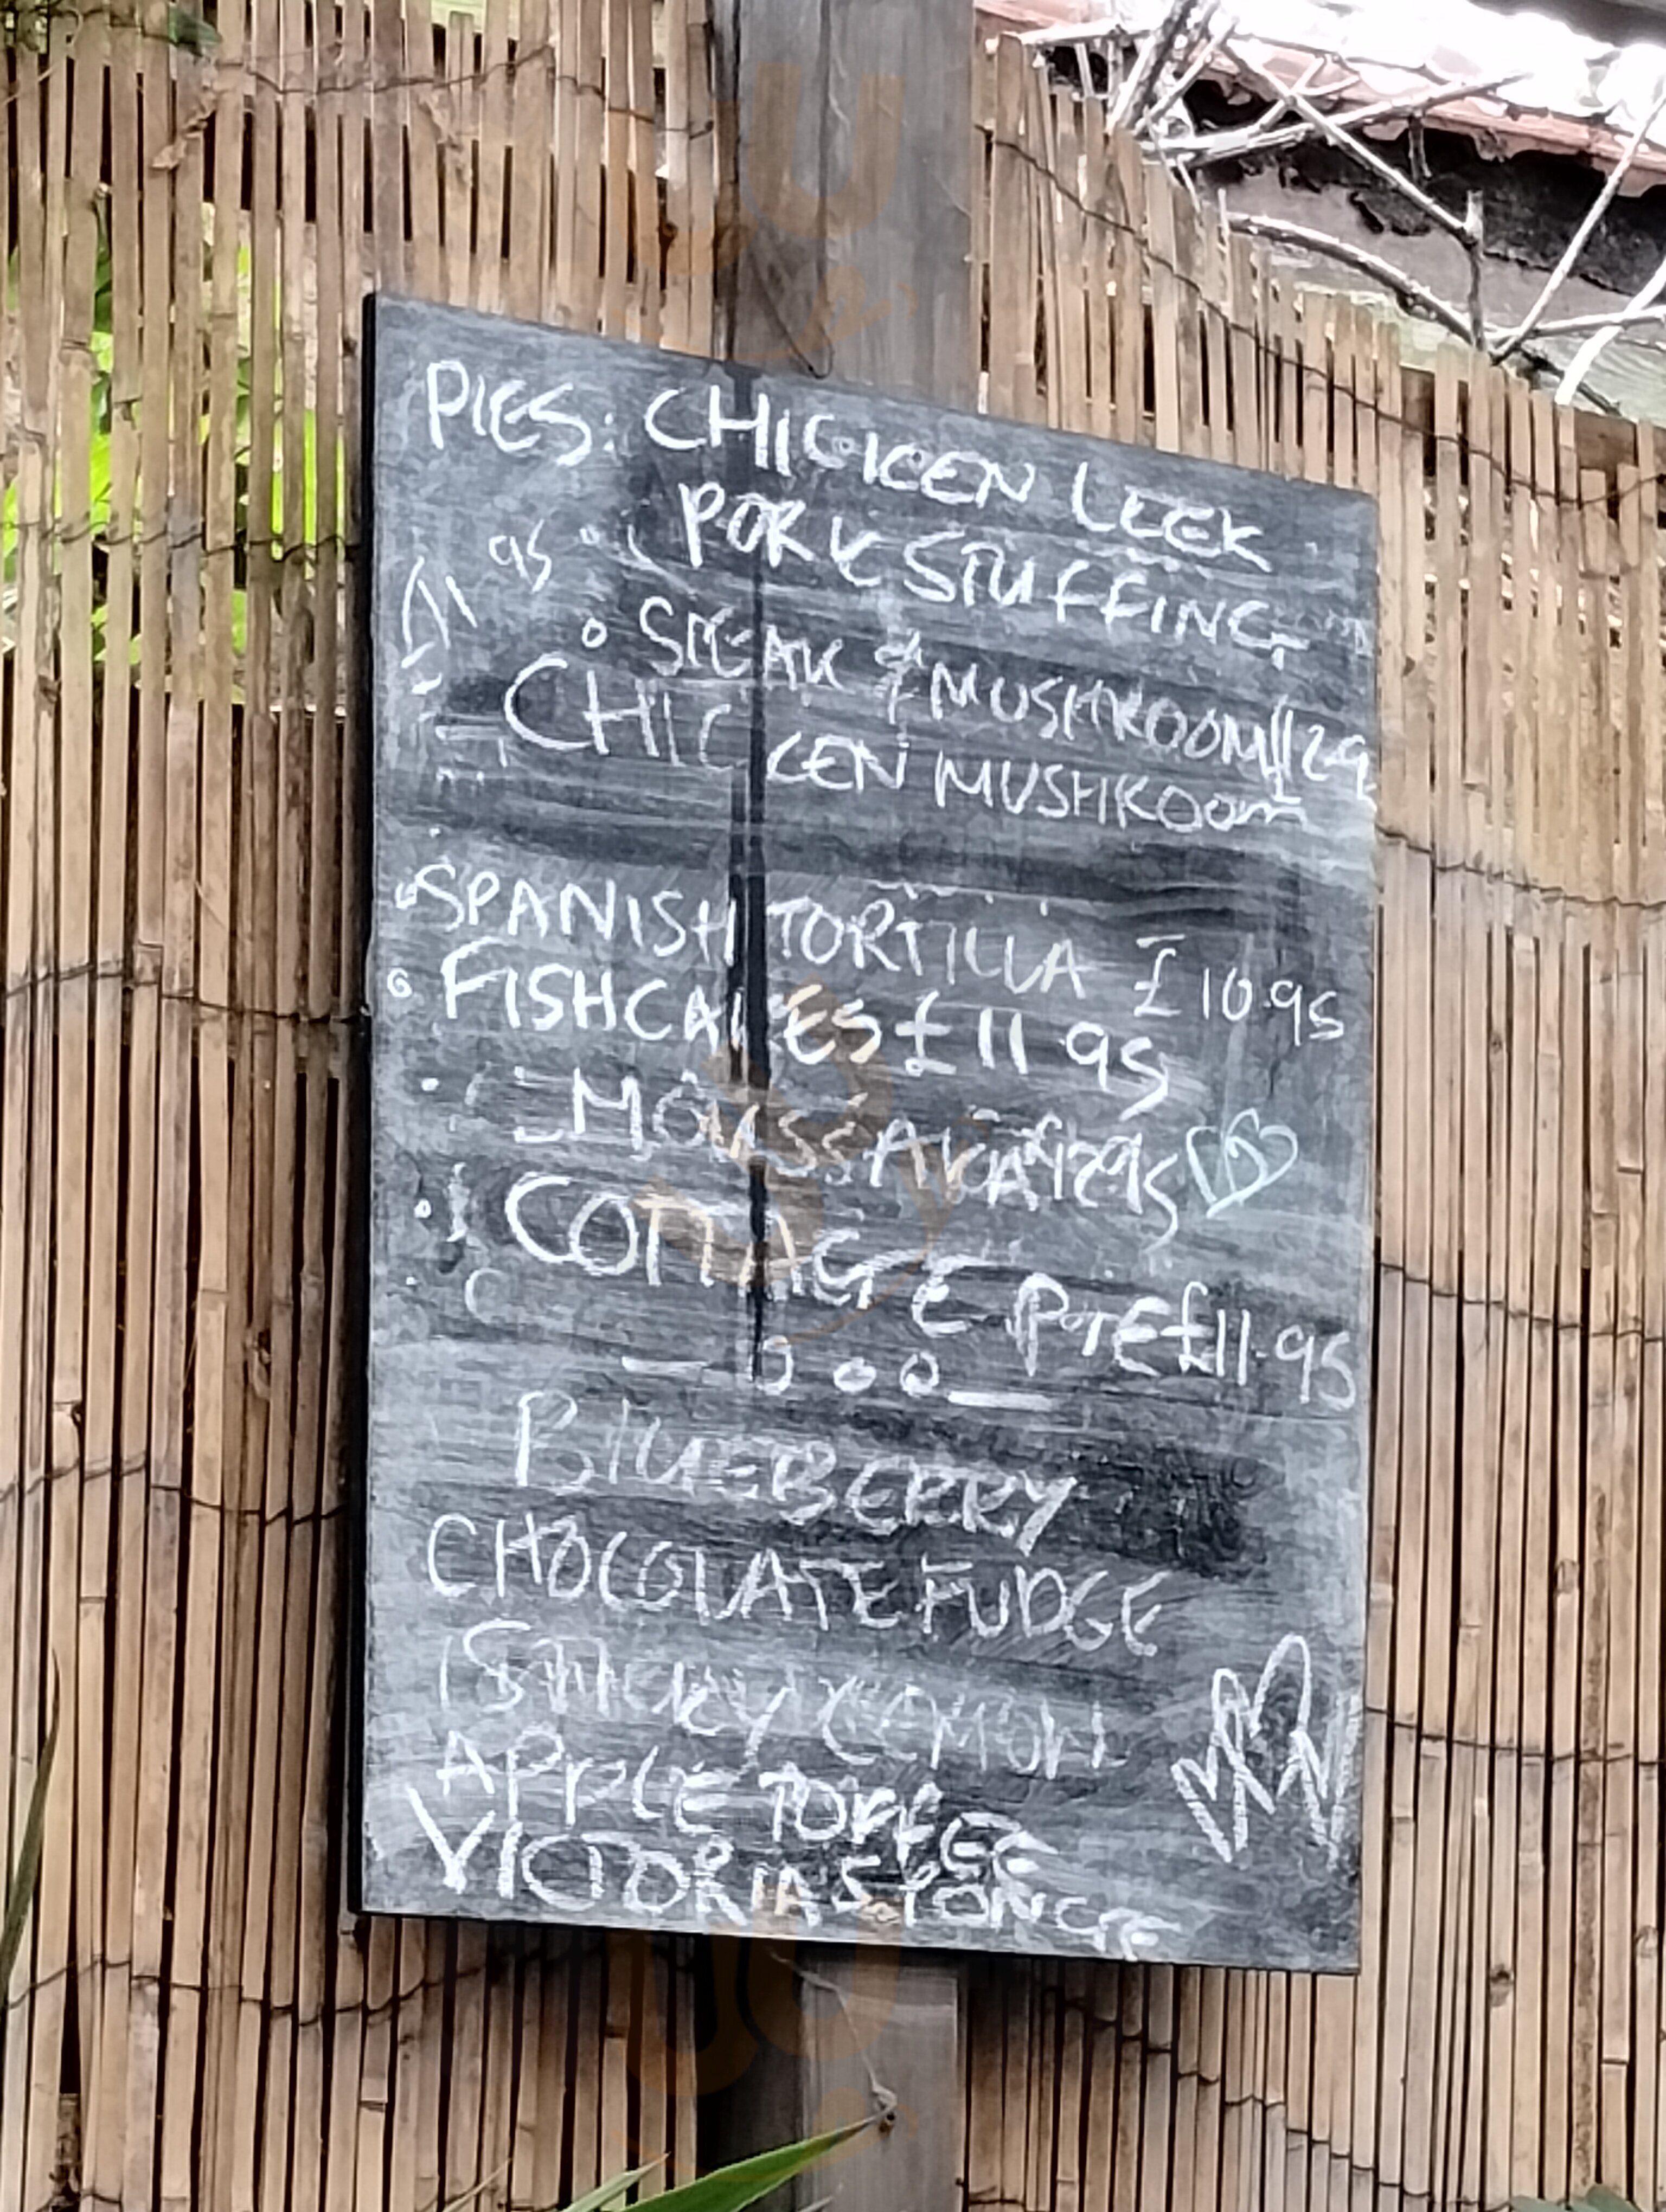 PIES: CHICKEN LEEK
PORK STUFFING
95
STEAK & MUSHROOM
CHICKEN MUSHROOM
SPANISH TORTILLA £10.95
FISHCAKES £11.95
MOUSSAKA £12.95
COTTAGE PIE £11.95
BLUEBERRY
CHOCOLATE FUDGE
STICKY LEMON
APPLE TOFFEE
VICTORIA SPONGE